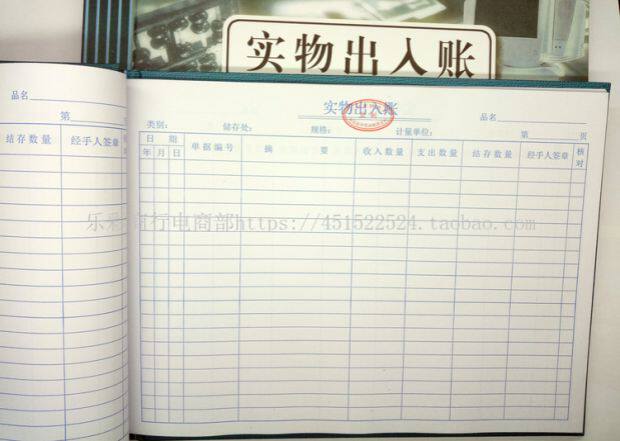 实物出入账
品名
第
结存数量 经手人签章
实物出入账
品名
类别: 储存处: 规格: 计量单位: 第 页
日 期 单据编号 摘 要 收入数量 支出数量 结存数量 经手人签章 核对
年 月 日
https://451522524.taobao.com